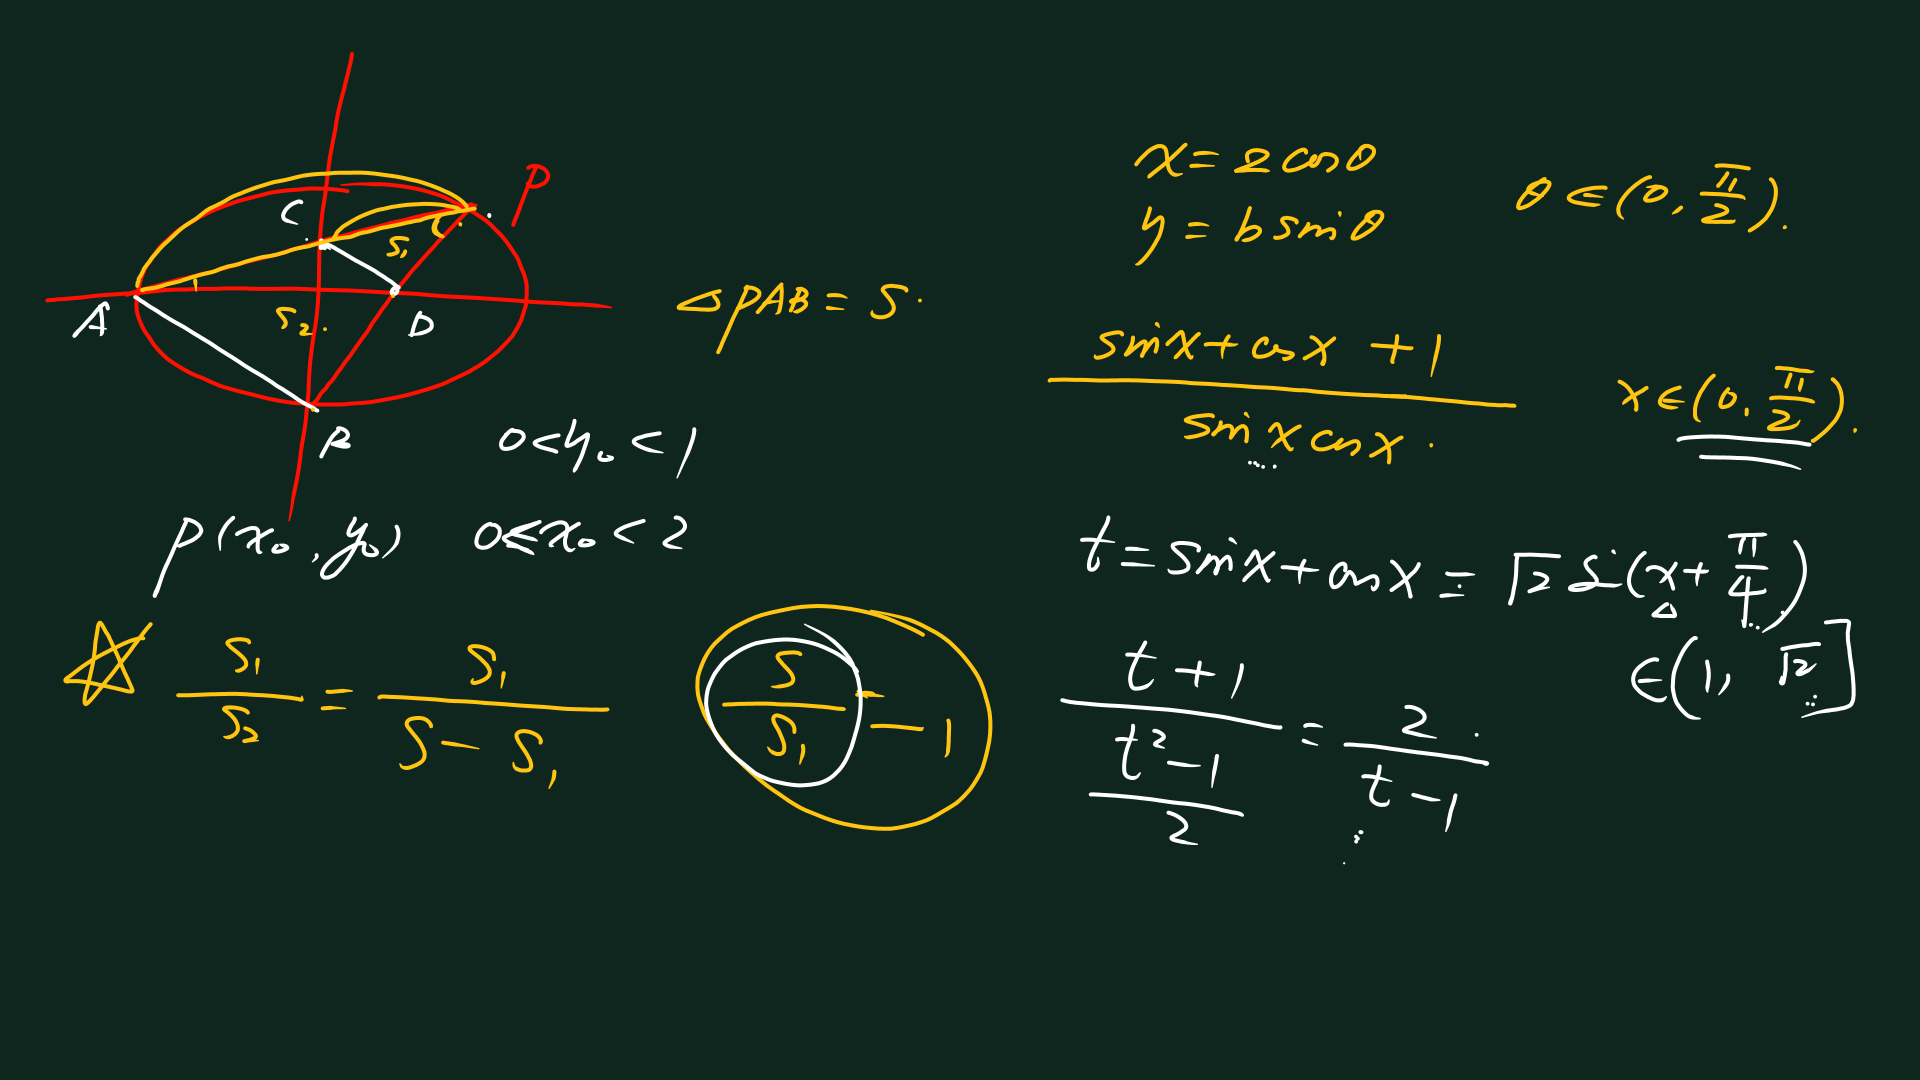 P
C
S₁
A
S₂.
D
B
△PAB = S.
0<y₀<1
P(x₀,y₀) 0≤x₀<2
S₁/S₂ = S₁/(S-S₁)
S/S₁ - 1
x = 2cosθ
y = bsinθ
θ∈(0, π/2).
(sinx+cosx+1)/(sinxcosx).
x∈(0, π/2).
t = sinx+cosx = √2 Sin(x+π/4)
∈(1, √2]
(t+1)/((t²-1)/2) = 2/(t-1)